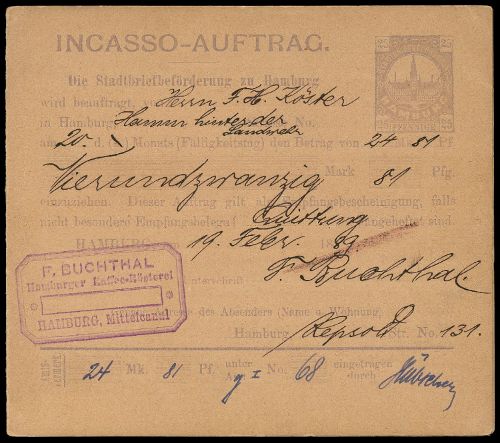 INCASSO-AUFTRAG.
25 25
Die Stadtbriefbeförderung zu Hamburg
wird beauftragt, von Herrn F. H. Köster
in Hamburg Hamm hinter der Landwehr No.
am 20. d. Monats (Fälligkeitstag) den Betrag von 24 81
Vierundzwanzig Mark 81 Pfg.
einzuziehen. Dieser Auftrag gilt als Empfangsbescheinigung, falls
nicht besondere Empfangsbelege Quittung angeheftet sind.
HAMBURG 19. Febr. 18
F. Buchthal.
F. BUCHTHAL
Hamburger Kaffee-Rösterei
HAMBURG, Mittelcanal
Unterschrift
Adresse des Absenders (Name u. Wohnung,
Hamburg, Repsold Str. No. 131.
24 Mk. 81 Pf. unter 68 eingetragen
durch